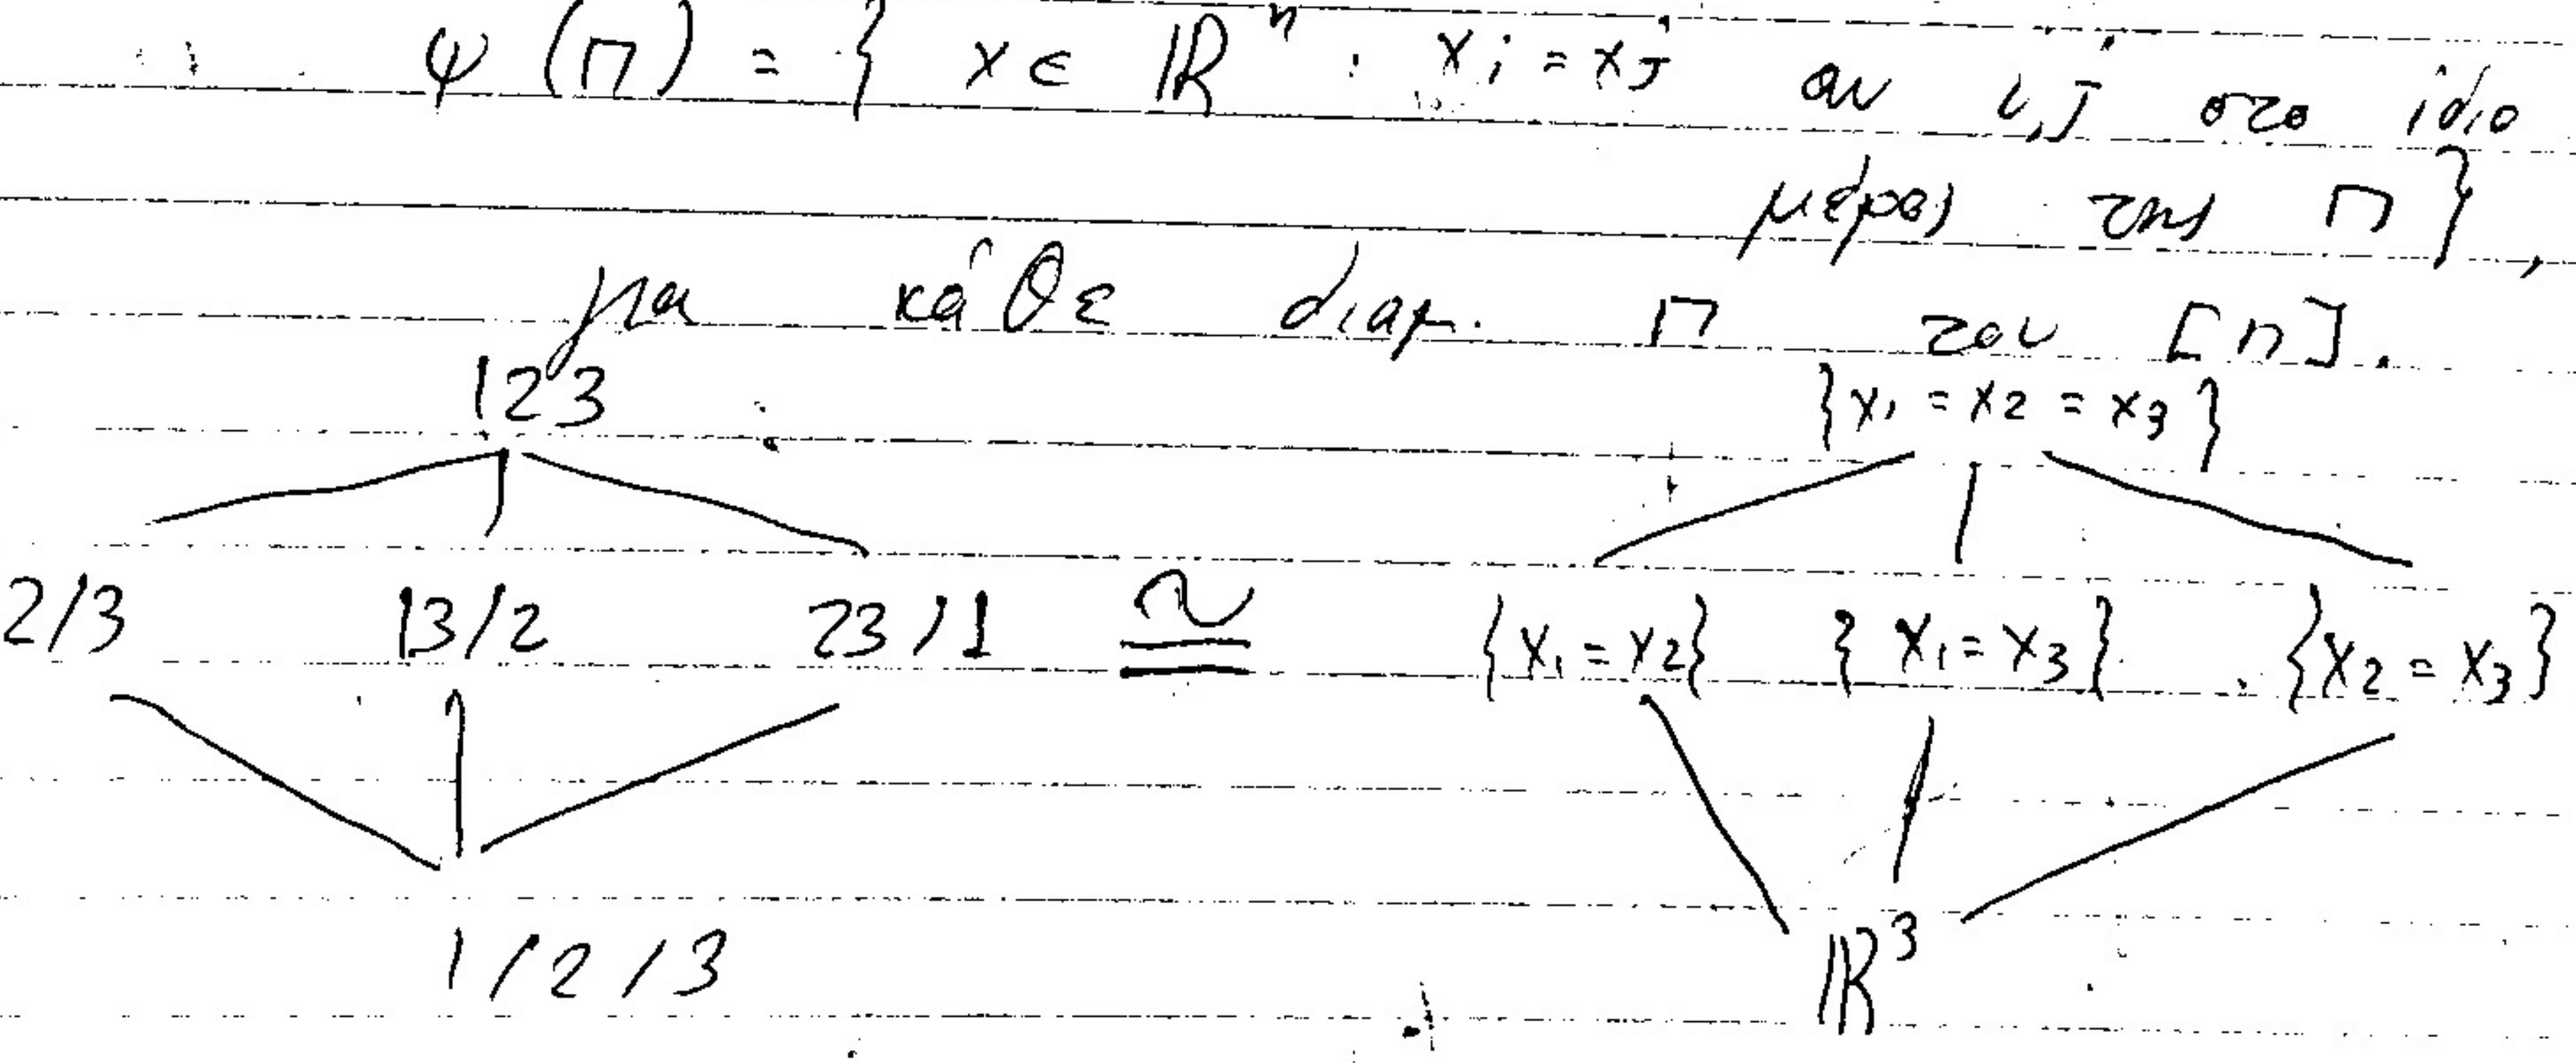 ψ(π) = { x ∈ ℝⁿ : xᵢ = xⱼ αν i,j στο ίδιο
μέρος της π},
για κάθε διαμ. π του [n].
123 {x₁ = x₂ = x₃}
2/3 13/2 23/1 ≅ {x₁ = x₂} {x₁ = x₃} {x₂ = x₃}
1/2/3 ℝ³